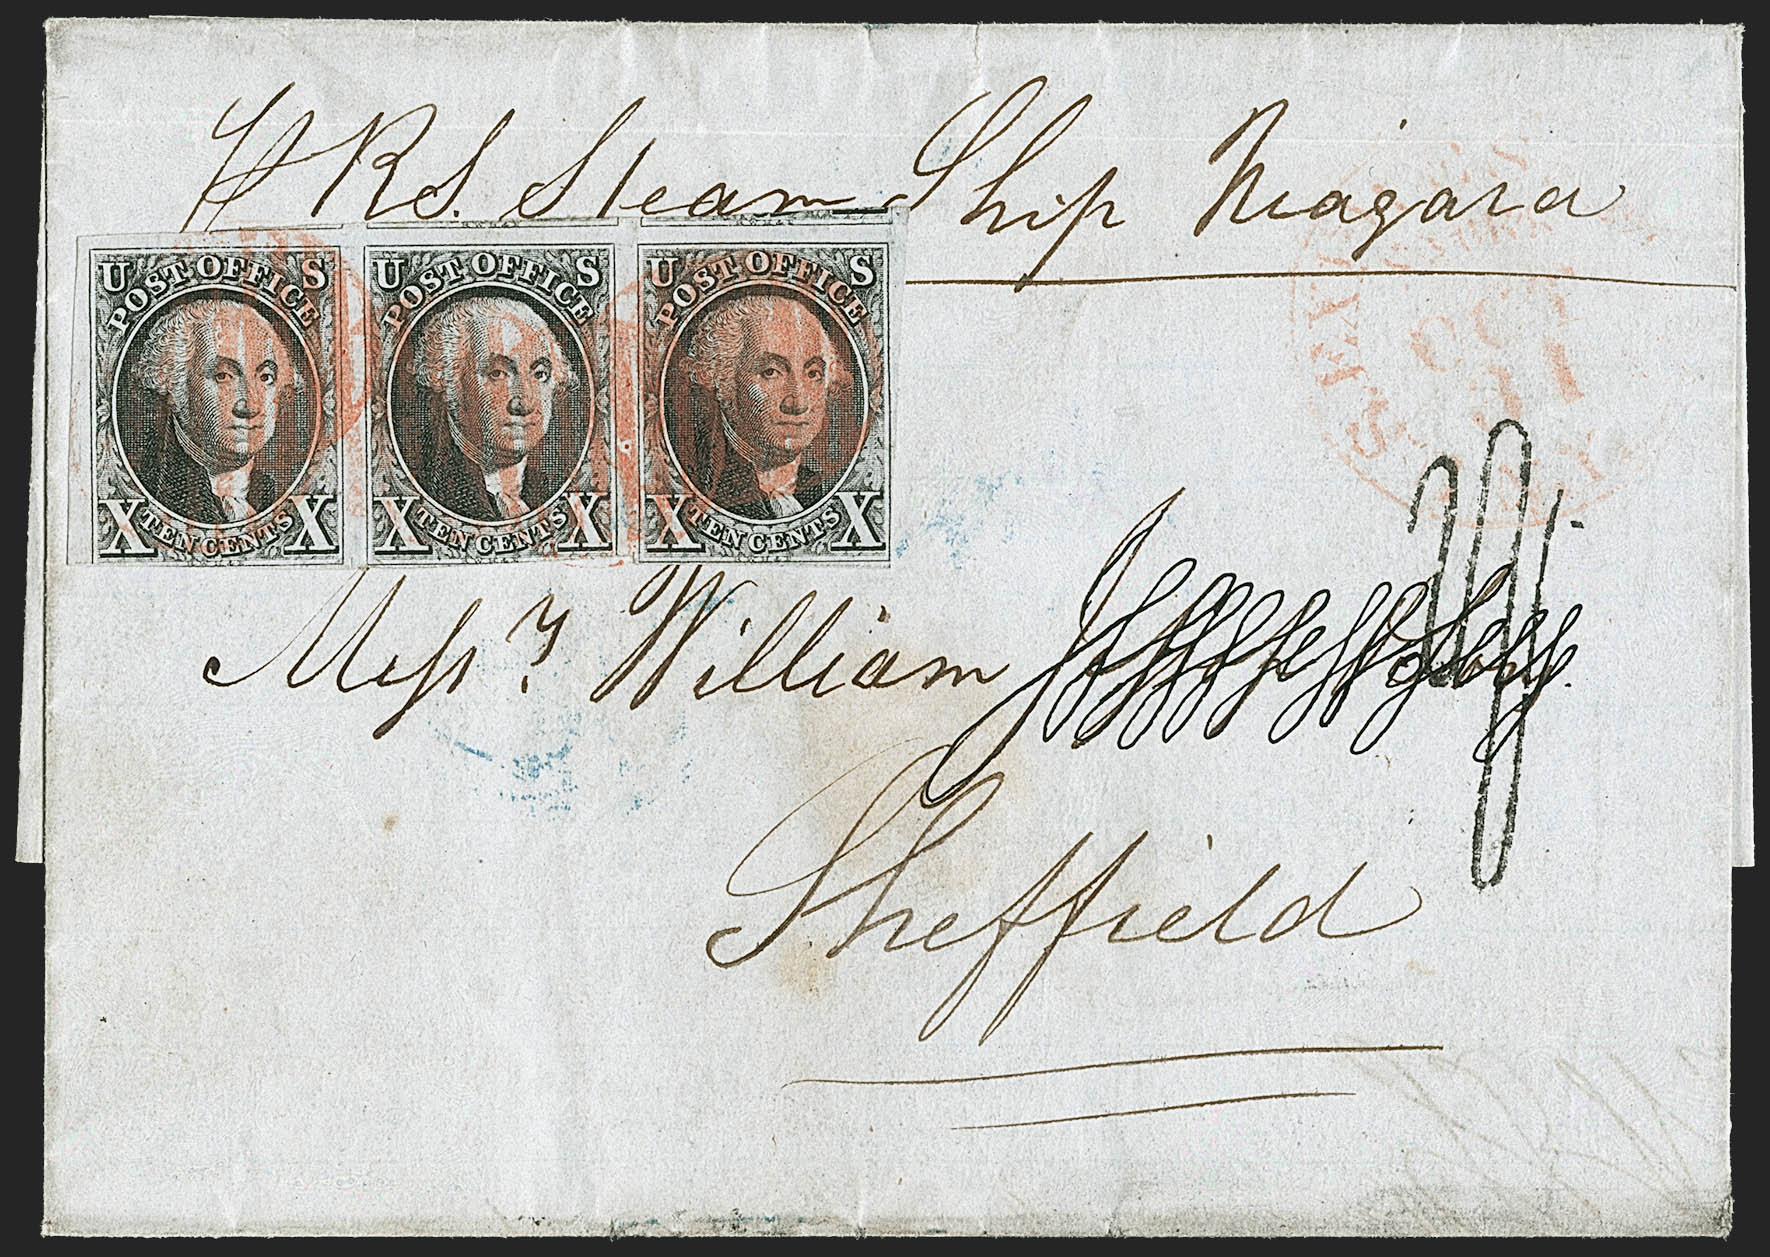 Pr R.S. Steam Ship Niagara
U S
POST OFFICE
X X
TEN CENTS
U S
POST OFFICE
X X
TEN CENTS
U S
POST OFFICE
X X
TEN CENTS
Messrs William
Sheffield